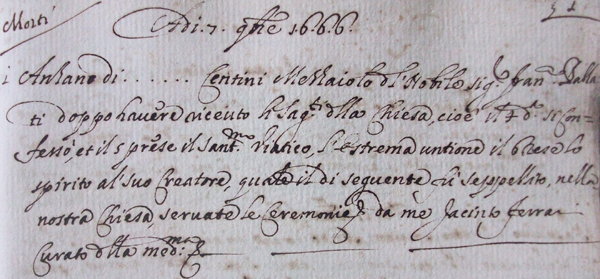 Morti
Adi 7. 9bre 1666. 51
1 Antano di ....... Centini Mezzaiolo d'l Nobile sig.r Fran.o Balla
ti doppo havere riceuto li sag.ti dlla Chiesa, cioè il 4 d.o si con=
fessò, et il 5 prese il Sant.mo Viatico, l'estrema untione il 6 rese lo
spirito al suo Creatore, quale il di seguente fù seppellito, nella
nostra Chiesa, servate le Ceremonie da me Jacinto Ferra
Curato dlla med.ma